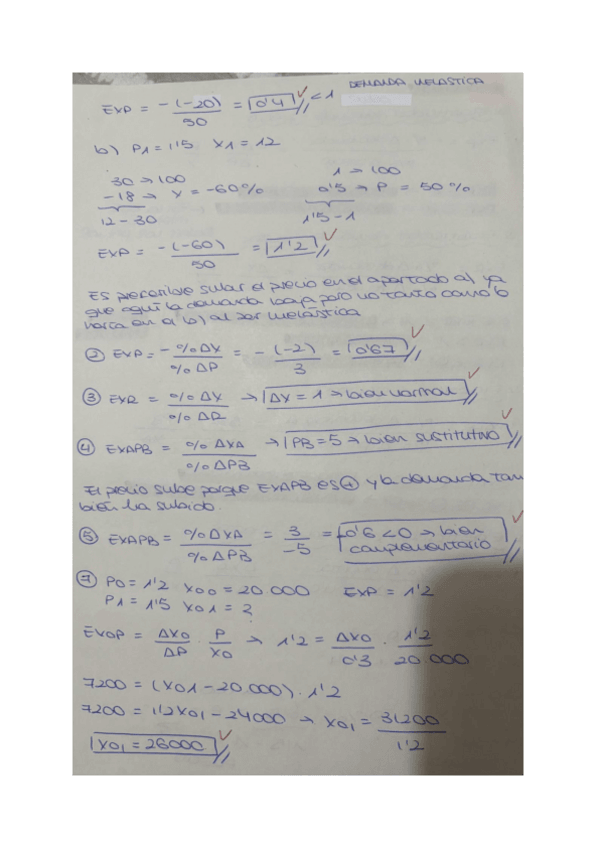 DEMANDA INELASTICA
EXP = -(-20) / 50 = 0'4 < 1
b) P1 = 1'5 X1 = 12
30 → 100 1 → 100
-18 → X = -60% 0'5 → P = 50%
12 - 30 1'5 - 1
EXP = -(-60) / 50 = 1'2
Es preferible subir el precio en el apartado a) ya
que aquí la demanda baja pero no tanto como lo
haría en el b) al ser inelástica
② EXP = - %ΔX / %ΔP = - (-2) / 3 = 0'67
③ EXR = %ΔX / %ΔR → ΔX = 1 → bien normal
④ EXAPB = %ΔXA / %ΔPB → PB = 5 → bien sustitutivo
El precio sube porque EXAPB es ⊕ y la demanda tam
bién ha subido.
⑤ EXAPB = %ΔXA / %ΔPB = 3 / -5 = -0'6 < 0 → bien
complementario
⑦ P0 = 1'2 X00 = 20.000 EXP = 1'2
P1 = 1'5 X01 = ?
EX0P = ΔX0 / ΔP · P / X0 → 1'2 = ΔX0 / 0'3 · 1'2 / 20.000
7200 = (X01 - 20.000) · 1'2
7200 = 1'2X01 - 24000 → X01 = 31200 / 1'2
X01 = 26000